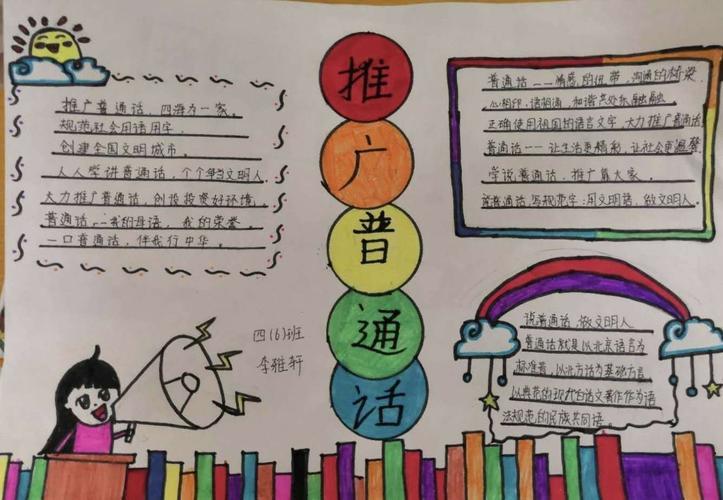 推广普通话
推广普通话，四海为一家。
规范社会用语用字，
创建全国文明城市。
人人学讲普通话，个个争当文明人
大力推广普通话，创设投资好环境。
普通话——我的母语，我的荣誉。
一口普通话，伴我行中华。
四(6)班
李雅轩
普通话——情感的纽带，沟通的桥梁。
心相印，语相通，和谐共处乐融融
正确使用祖国的语言文字，大力推广普通话。
普通话——让生活更精彩，让社会更温馨
学说普通话，推广靠大家。
普通话，写规范字：用文明语，做文明人。
说普通话，做文明人
普通话就是以北京语言为
标准音，以北方话为基础方言
以典范的现代白话文著作作为语
法规范的民族共同语。